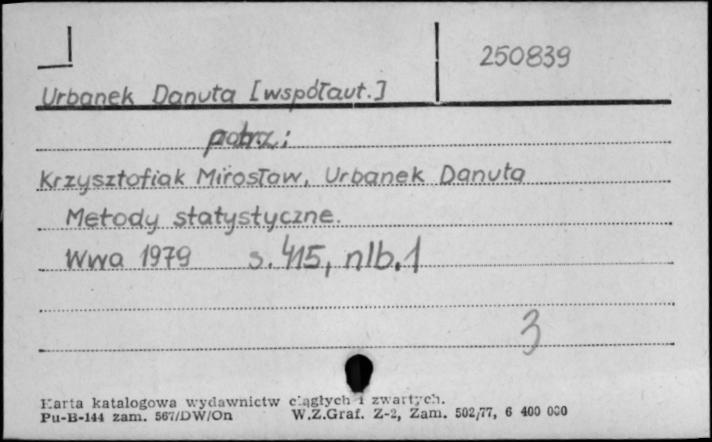 250839
Urbanek Danuta [współaut.]
patrz:
Krzysztofiak Mirosław, Urbanek Danuta
Metody statystyczne.
Wwa 1979 s. 415, nlb. 1
3
Karta katalogowa wydawnictw ciągłych i zwartych.
Pu-B-144 zam. 567/DW/On W.Z.Graf. Z-2, Zam. 502/77, 6 400 000